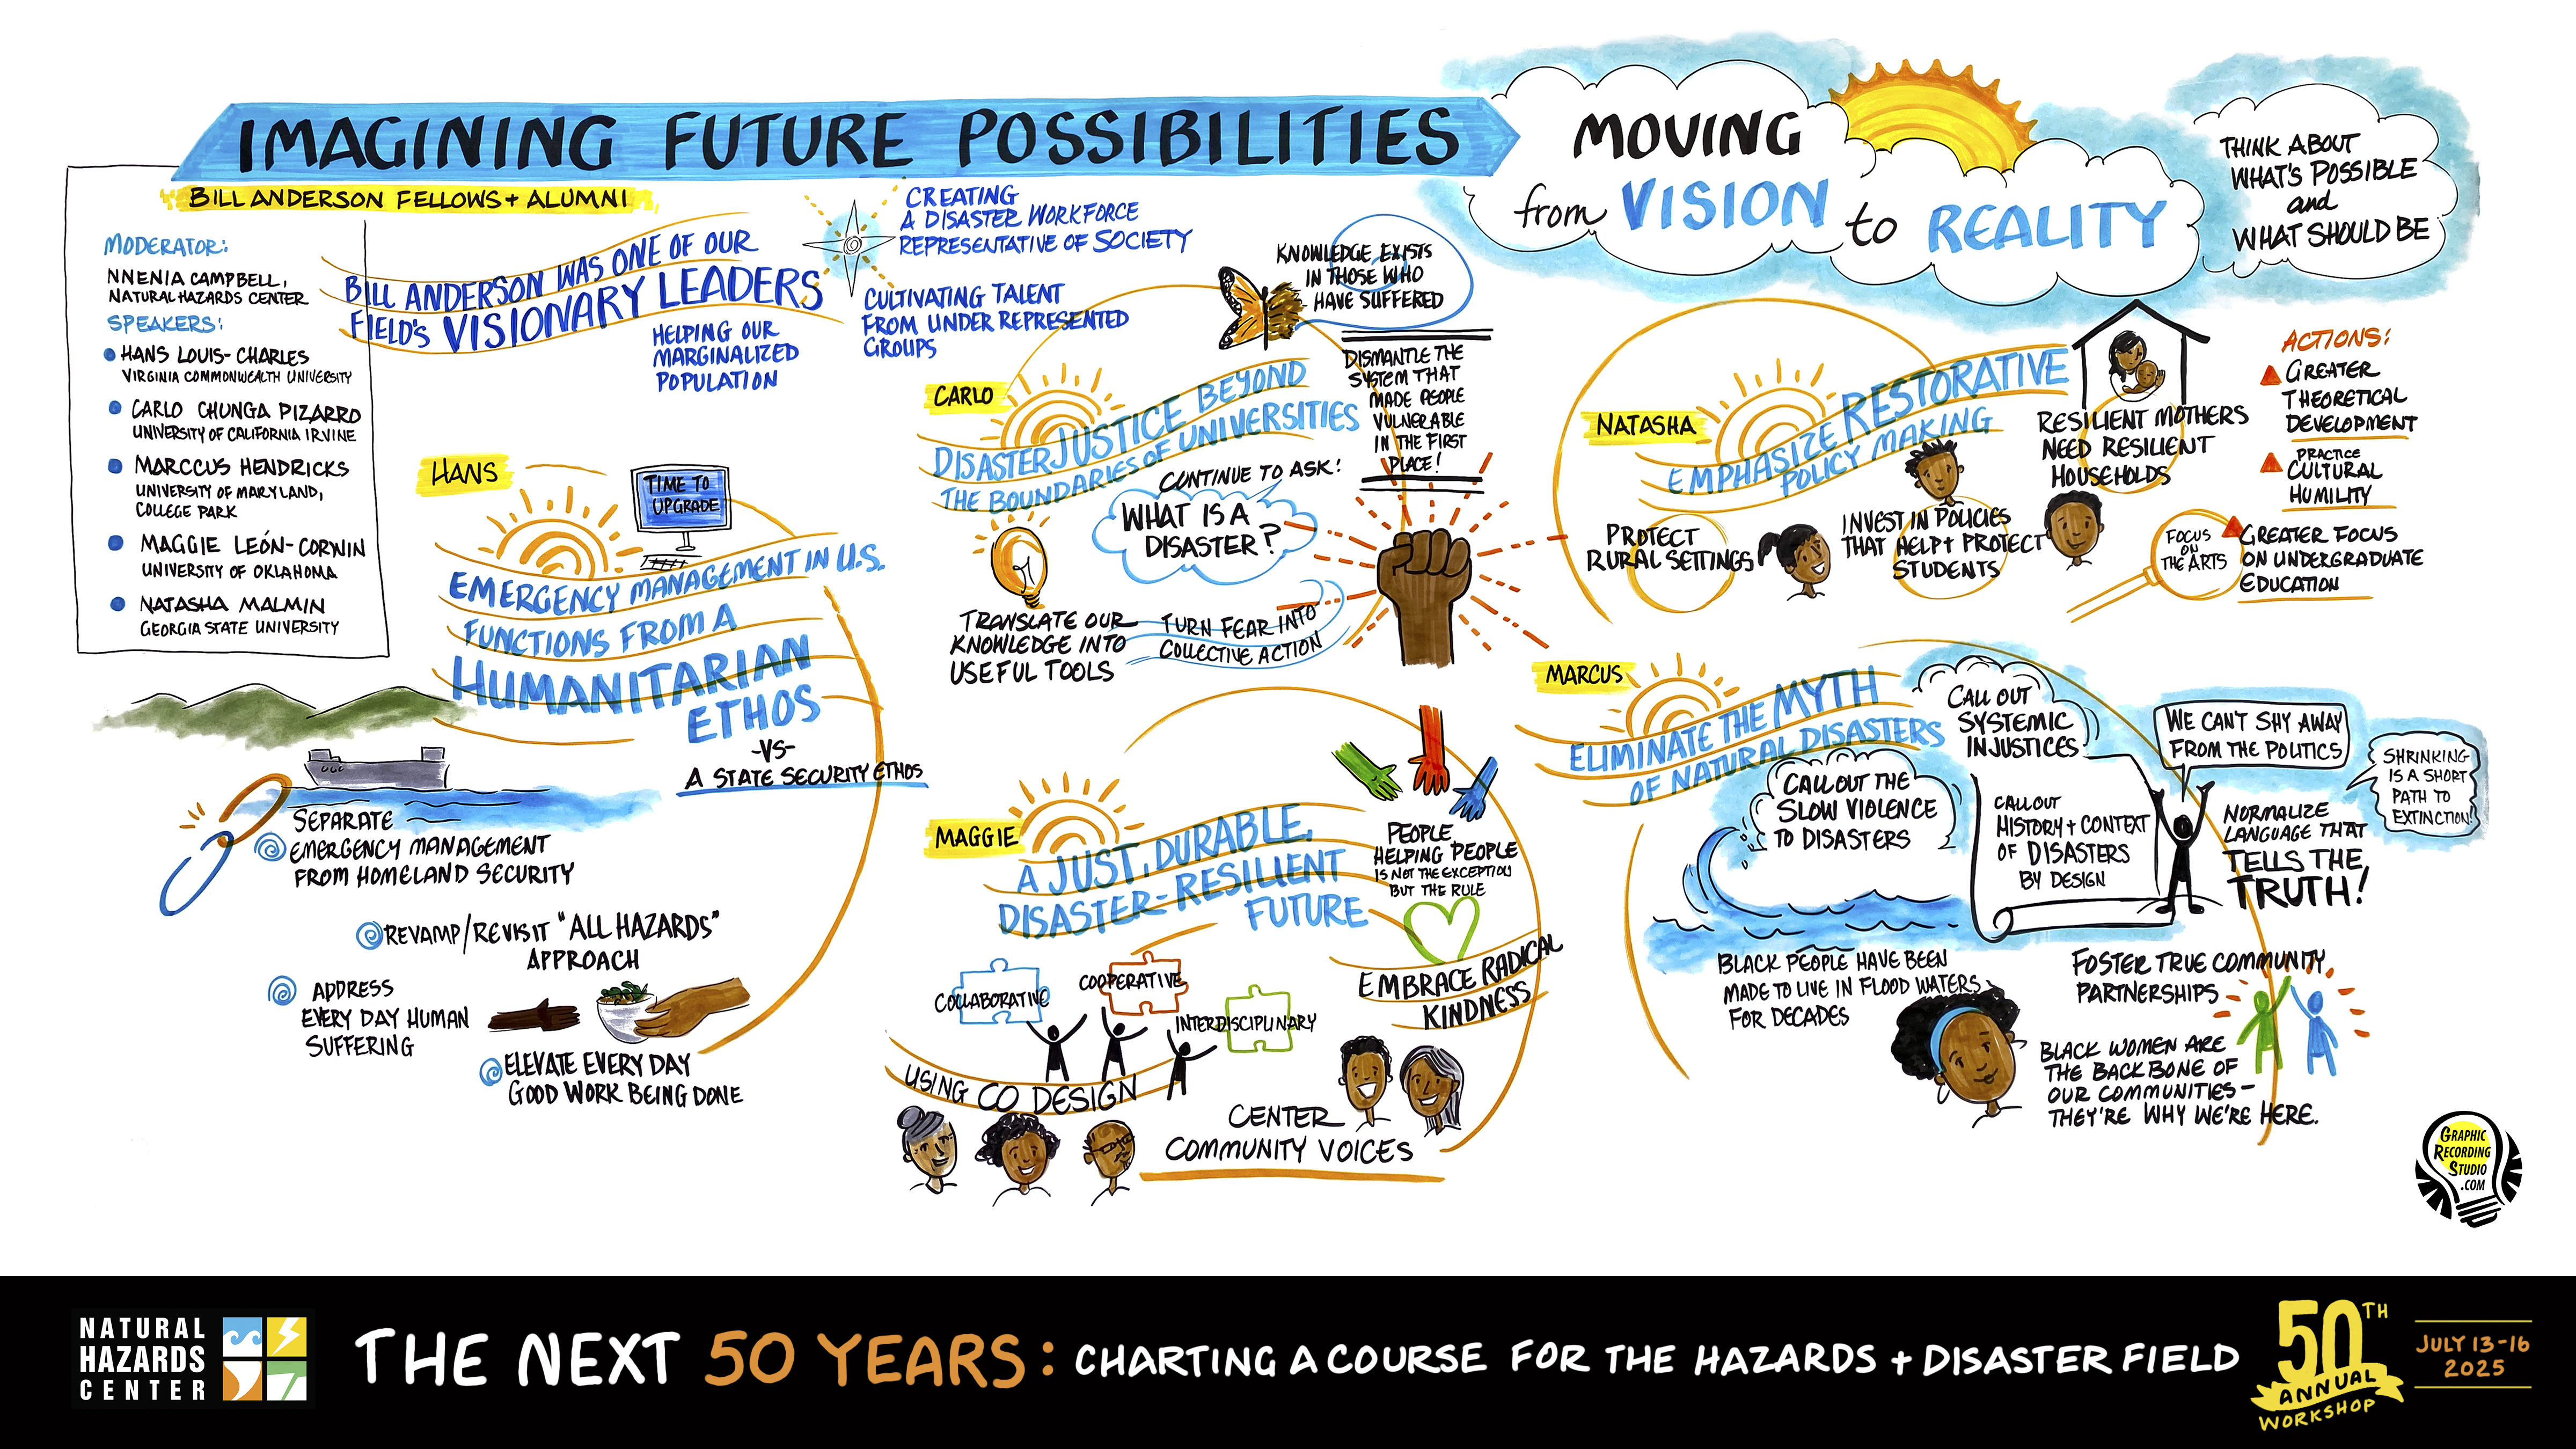 IMAGINING FUTURE POSSIBILITIES
MOVING
from VISION to REALITY
THINK ABOUT
WHAT'S POSSIBLE
and
WHAT SHOULD BE
BILL ANDERSON FELLOWS + ALUMNI
MODERATOR:
NNENIA CAMPBELL,
NATURAL HAZARDS CENTER
SPEAKERS:
HANS LOUIS-CHARLES
VIRGINIA COMMONWEALTH UNIVERSITY
CARLO CHUNGA PIZARRO
UNIVERSITY OF CALIFORNIA IRVINE
MARCCUS HENDRICKS
UNIVERSITY OF MARYLAND,
COLLEGE PARK
MAGGIE LEÓN-CORWIN
UNIVERSITY OF OKLAHOMA
NATASHA MALMIN
GEORGIA STATE UNIVERSITY
BILL ANDERSON WAS ONE OF OUR
FIELD'S VISIONARY LEADERS
HELPING OUR
MARGINALIZED
POPULATION
CREATING
A DISASTER WORKFORCE
REPRESENTATIVE OF SOCIETY
CULTIVATING TALENT
FROM UNDER REPRESENTED
GROUPS
HANS
TIME TO
UPGRADE
EMERGENCY MANAGEMENT IN U.S.
FUNCTIONS FROM A
HUMANITARIAN
ETHOS
-VS-
A STATE SECURITY ETHOS
SEPARATE
EMERGENCY MANAGEMENT
FROM HOMELAND SECURITY
REVAMP/REVISIT "ALL HAZARDS"
APPROACH
ADDRESS
EVERY DAY HUMAN
SUFFERING
ELEVATE EVERY DAY
GOOD WORK BEING DONE
CARLO
DISASTER JUSTICE BEYOND
THE BOUNDARIES OF UNIVERSITIES
KNOWLEDGE EXISTS
IN THOSE WHO
HAVE SUFFERED
DISMANTLE THE
SYSTEM THAT
MADE PEOPLE
VULNERABLE
IN THE FIRST
PLACE!
CONTINUE TO ASK:
WHAT IS A
DISASTER?
TRANSLATE OUR
KNOWLEDGE INTO
USEFUL TOOLS
TURN FEAR INTO
COLLECTIVE ACTION
MAGGIE
A JUST, DURABLE,
DISASTER-RESILIENT
FUTURE
PEOPLE
HELPING PEOPLE
IS NOT THE EXCEPTION
BUT THE RULE
EMBRACE RADICAL
KINDNESS
COLLABORATIVE
COOPERATIVE
INTERDISCIPLINARY
USING CO DESIGN
CENTER
COMMUNITY VOICES
NATASHA
EMPHASIZE RESTORATIVE
POLICY MAKING
RESILIENT MOTHERS
NEED RESILIENT
HOUSEHOLDS
PROTECT
RURAL SETTINGS
INVEST IN POLICIES
THAT HELP + PROTECT
STUDENTS
FOCUS
ON
THE ARTS
ACTIONS:
GREATER
THEORETICAL
DEVELOPMENT
PRACTICE
CULTURAL
HUMILITY
GREATER FOCUS
ON UNDERGRADUATE
EDUCATION
MARCUS
ELIMINATE THE MYTH
OF NATURAL DISASTERS
CALL OUT
SYSTEMIC
INJUSTICES
CALL OUT THE
SLOW VIOLENCE
TO DISASTERS
CALL OUT
HISTORY + CONTEXT
OF DISASTERS
BY DESIGN
WE CAN'T SHY AWAY
FROM THE POLITICS
SHRINKING
IS A SHORT
PATH TO
EXTINCTION!
NORMALIZE
LANGUAGE THAT
TELLS THE
TRUTH!
BLACK PEOPLE HAVE BEEN
MADE TO LIVE IN FLOOD WATERS
FOR DECADES
FOSTER TRUE COMMUNITY
PARTNERSHIPS
BLACK WOMEN ARE
THE BACKBONE OF
OUR COMMUNITIES-
THEY'RE WHY WE'RE HERE.
GRAPHIC
RECORDING
STUDIO
.COM
NATURAL
HAZARDS
CENTER
THE NEXT 50 YEARS: CHARTING A COURSE FOR THE HAZARDS + DISASTER FIELD
50TH
ANNUAL
WORKSHOP
JULY 13-16
2025